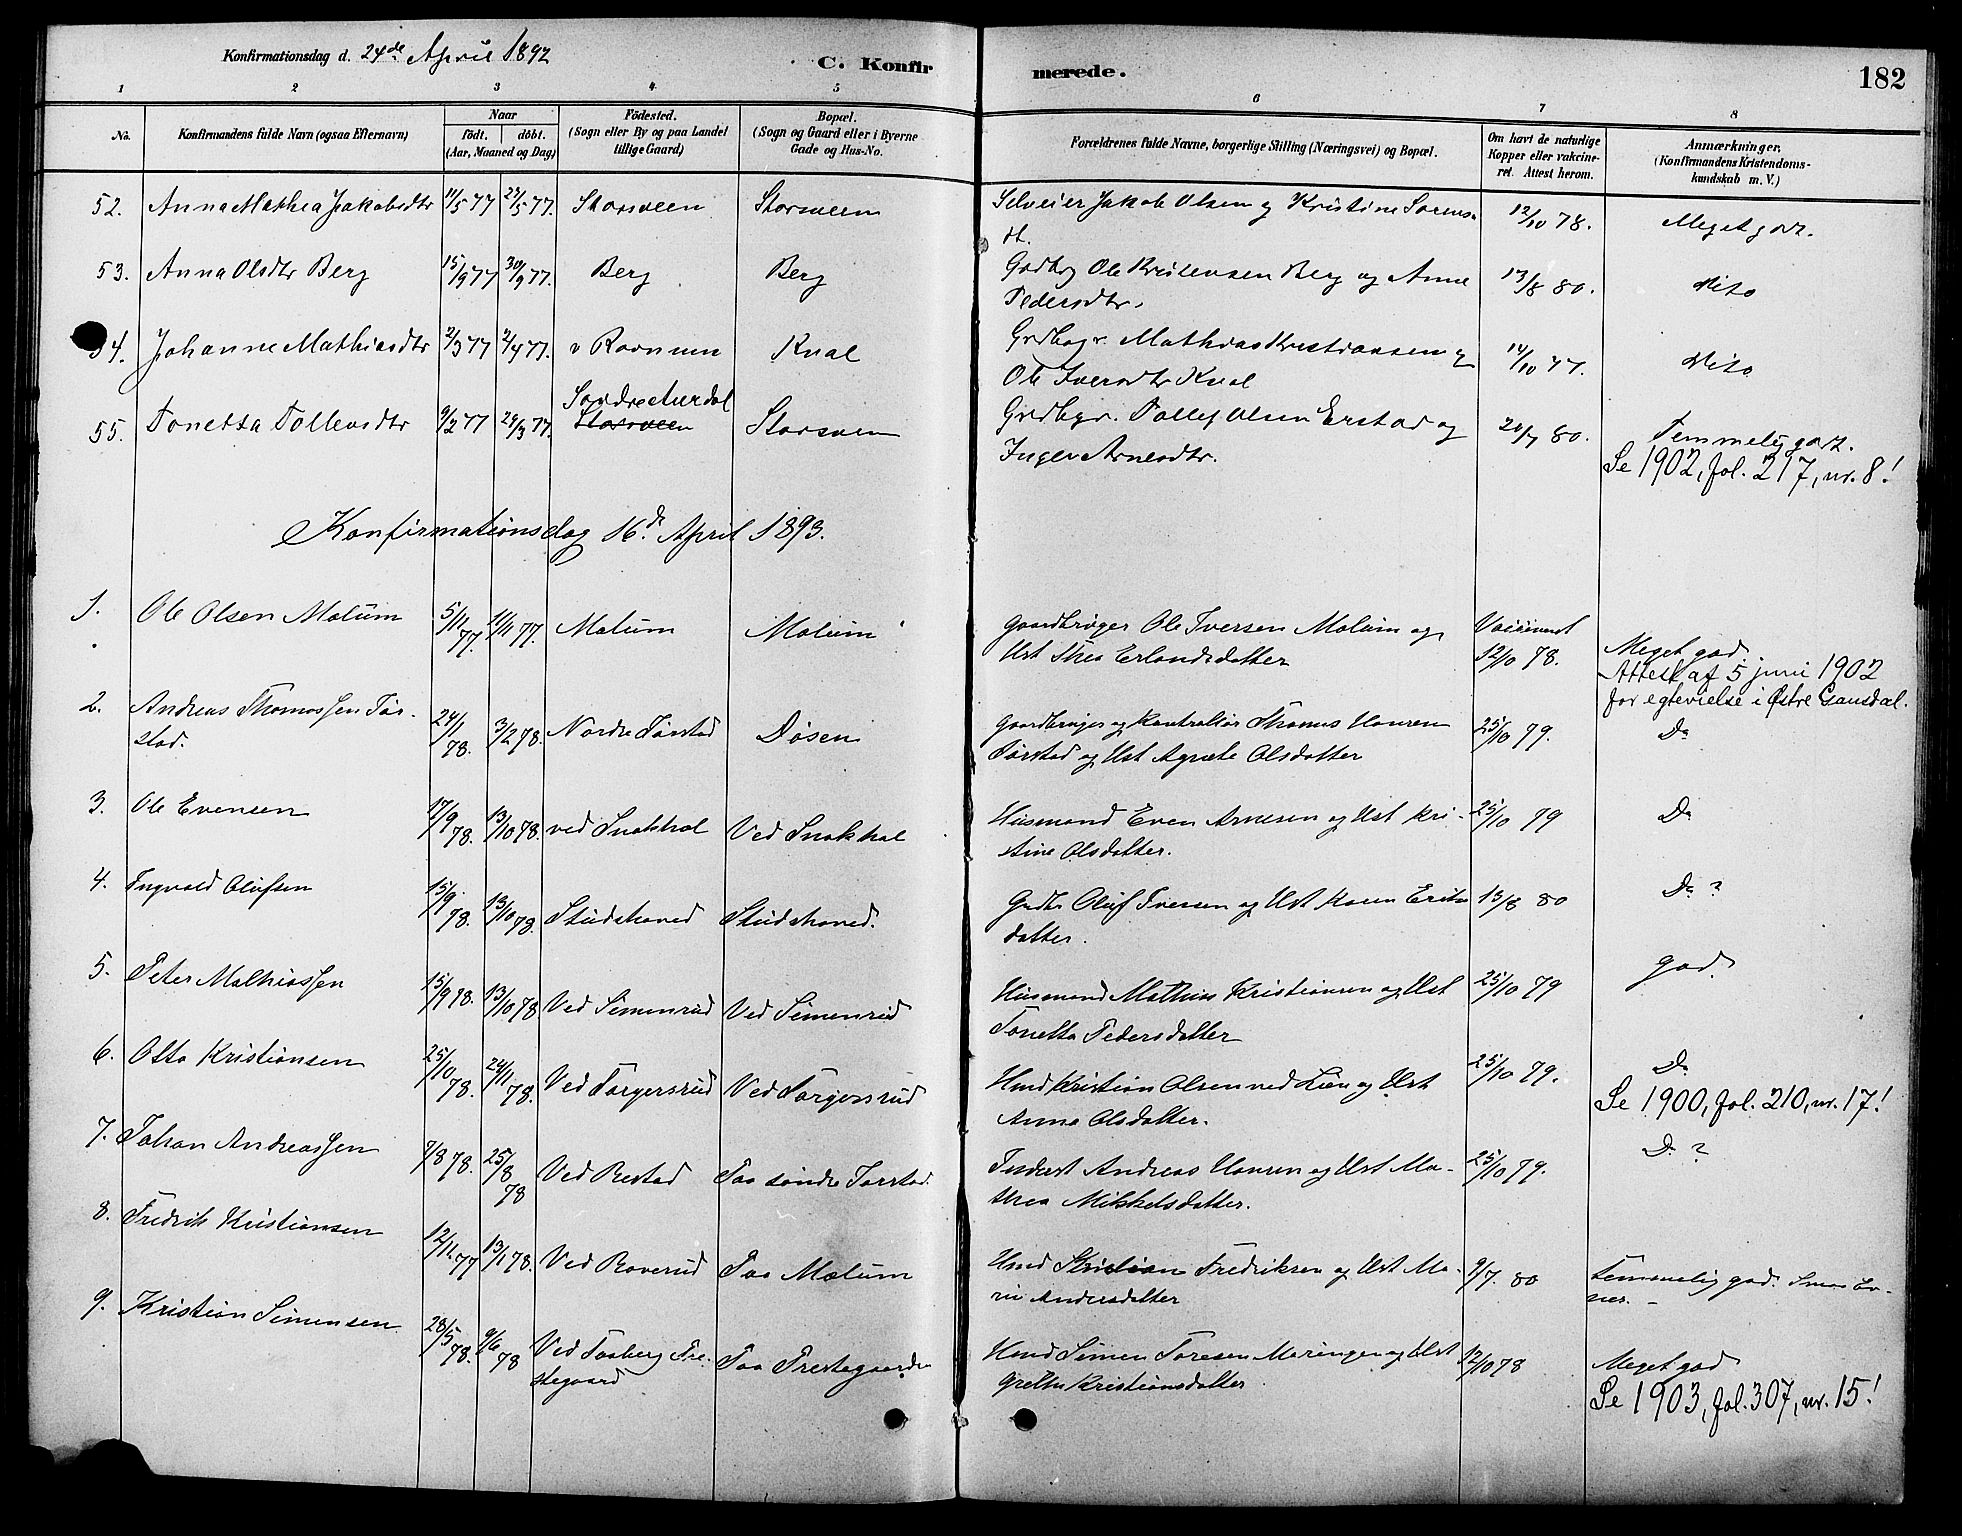 Konfirmationsdag d. 24de April 1892
C. Konfirmerede.
182
1 2 3 4 5 6 7 8
No. Konfirmandens fulde Navn (ogsaa Efternavn) Naar födt. döbt. (Aar, Maaned og Dag) Födested. (Sogn eller By og paa Landet tillige Gaard) Bopæl. (Sogn og Gaard eller i Byerne Gade og Hus-No. Forældrenes fulde Navne, borgerlige Stilling (Næringsvei) og Bopæl. Om havt de naturlige Kopper eller vakcineret. Attest herom. Anmærkninger. (Konfirmandens Kristendomskundskab m. V.)
52. Anna Mathea Jakobsdtr 11/5 77 27/5 77. Storsveen Storsveen Selveier Jakob Olsen og Kristine Sorens-
dt. 12/10 78. Meget godt.
53. Anna Olsdtr Berg 15/9 77 30/9 77. Berg Berg Grdbrg Ole Kristensen Berg og Anne
Pedersdtr. 13/8 80. Dito
54. Johanne Mathiasdtr 2/3 77 2/4 77. v Rovnum Kual Grdbgr. Mathias Kristiansen og
Ole Iversdtr Kual 14/10 77. Dito
55. Tonetta Tollevsdtr 9/2 77 29/3 77. Søndre Aurdal
Storsveen Storsveen Grdbgr. Tollef Olsen Erstad og
Inger Arnesdtr. 20/7 80. Temmelig godt.
Se 1902, fol. 217, nr. 8!
Konfirmationsdag 16de April 1893.
1. Ole Olsen Mælum 5/11 77. 11/11 77. Mælum Mælum Gaardbruger Ole Iversen Mælum og
Ust Thea Erlandsdatter Vaccineret
12/10 78. Meget god.
Attest af 5 juni 1902
for egtevielse i Østre Gausdal.
2. Andreas Thomassen Tor-
stad. 24/1 78. 3/2 78. Nordre Jørstad Døsen Gaardbruger og Kontrollør Thomas Hansen
Jørstad og Ust Agnete Olsdatter 25/10 79. Do
3. Ole Evensen 17/9 78. 13/10 78. ved Snækkal Ved Snækkal Husmand Even Arnesen og Ust Kri-
stine Olsdatter. 25/10 79 Do
4. Ingvald Olufsen 15/9 78. 13/10 78. Studshoved Studshoved. Grdbr Oluf Iversen og Ust Karen Eriks
datter. 13/8 80 Do ?
5. Peter Mathiassen 15/9 78. 13/10 78 Ved Simenrud Ved Simenrud Husmand Mathias Kristiansen og Ust
Tonetta Pedersdatter 25/10 79 god.
6. Otto Kristiansen 25/10 78. 24/11 78. Ved Torgersrud Ved Torgersrud Hmd Kristian Olsen ved Lien og Ust
Anna Olsdatter. 25/10 79. Do
Se 1900, fol. 210, nr. 17!
7. Johan Andreassen 7/8 78. 25/8 78 Ved Restad Paa søndre Jørstad. Inderst Andreas Hansen og Ust Ma-
thea Mikkelsdatter. 25/10 79. Do ?
8. Fredrik Kristiansen 12/11 77 13/1 78. Ved Roverud Paa Mælum Hmd Kristian Fredriksen og Ust Ma-
rie Andersdatter 9/7. 80 Temmelig god. Smaa Ev-
ner. –
9. Kristian Simensen 28/5 78. 9/6 78 Ved Faaberg Pre-
stegaard Paa Prestegaarden Hmd Simen Toresen Maringen og Ust
Grethe Kristiansdatter 12/10 78 Meget god
Se 1903, fol. 307, nr. 15!